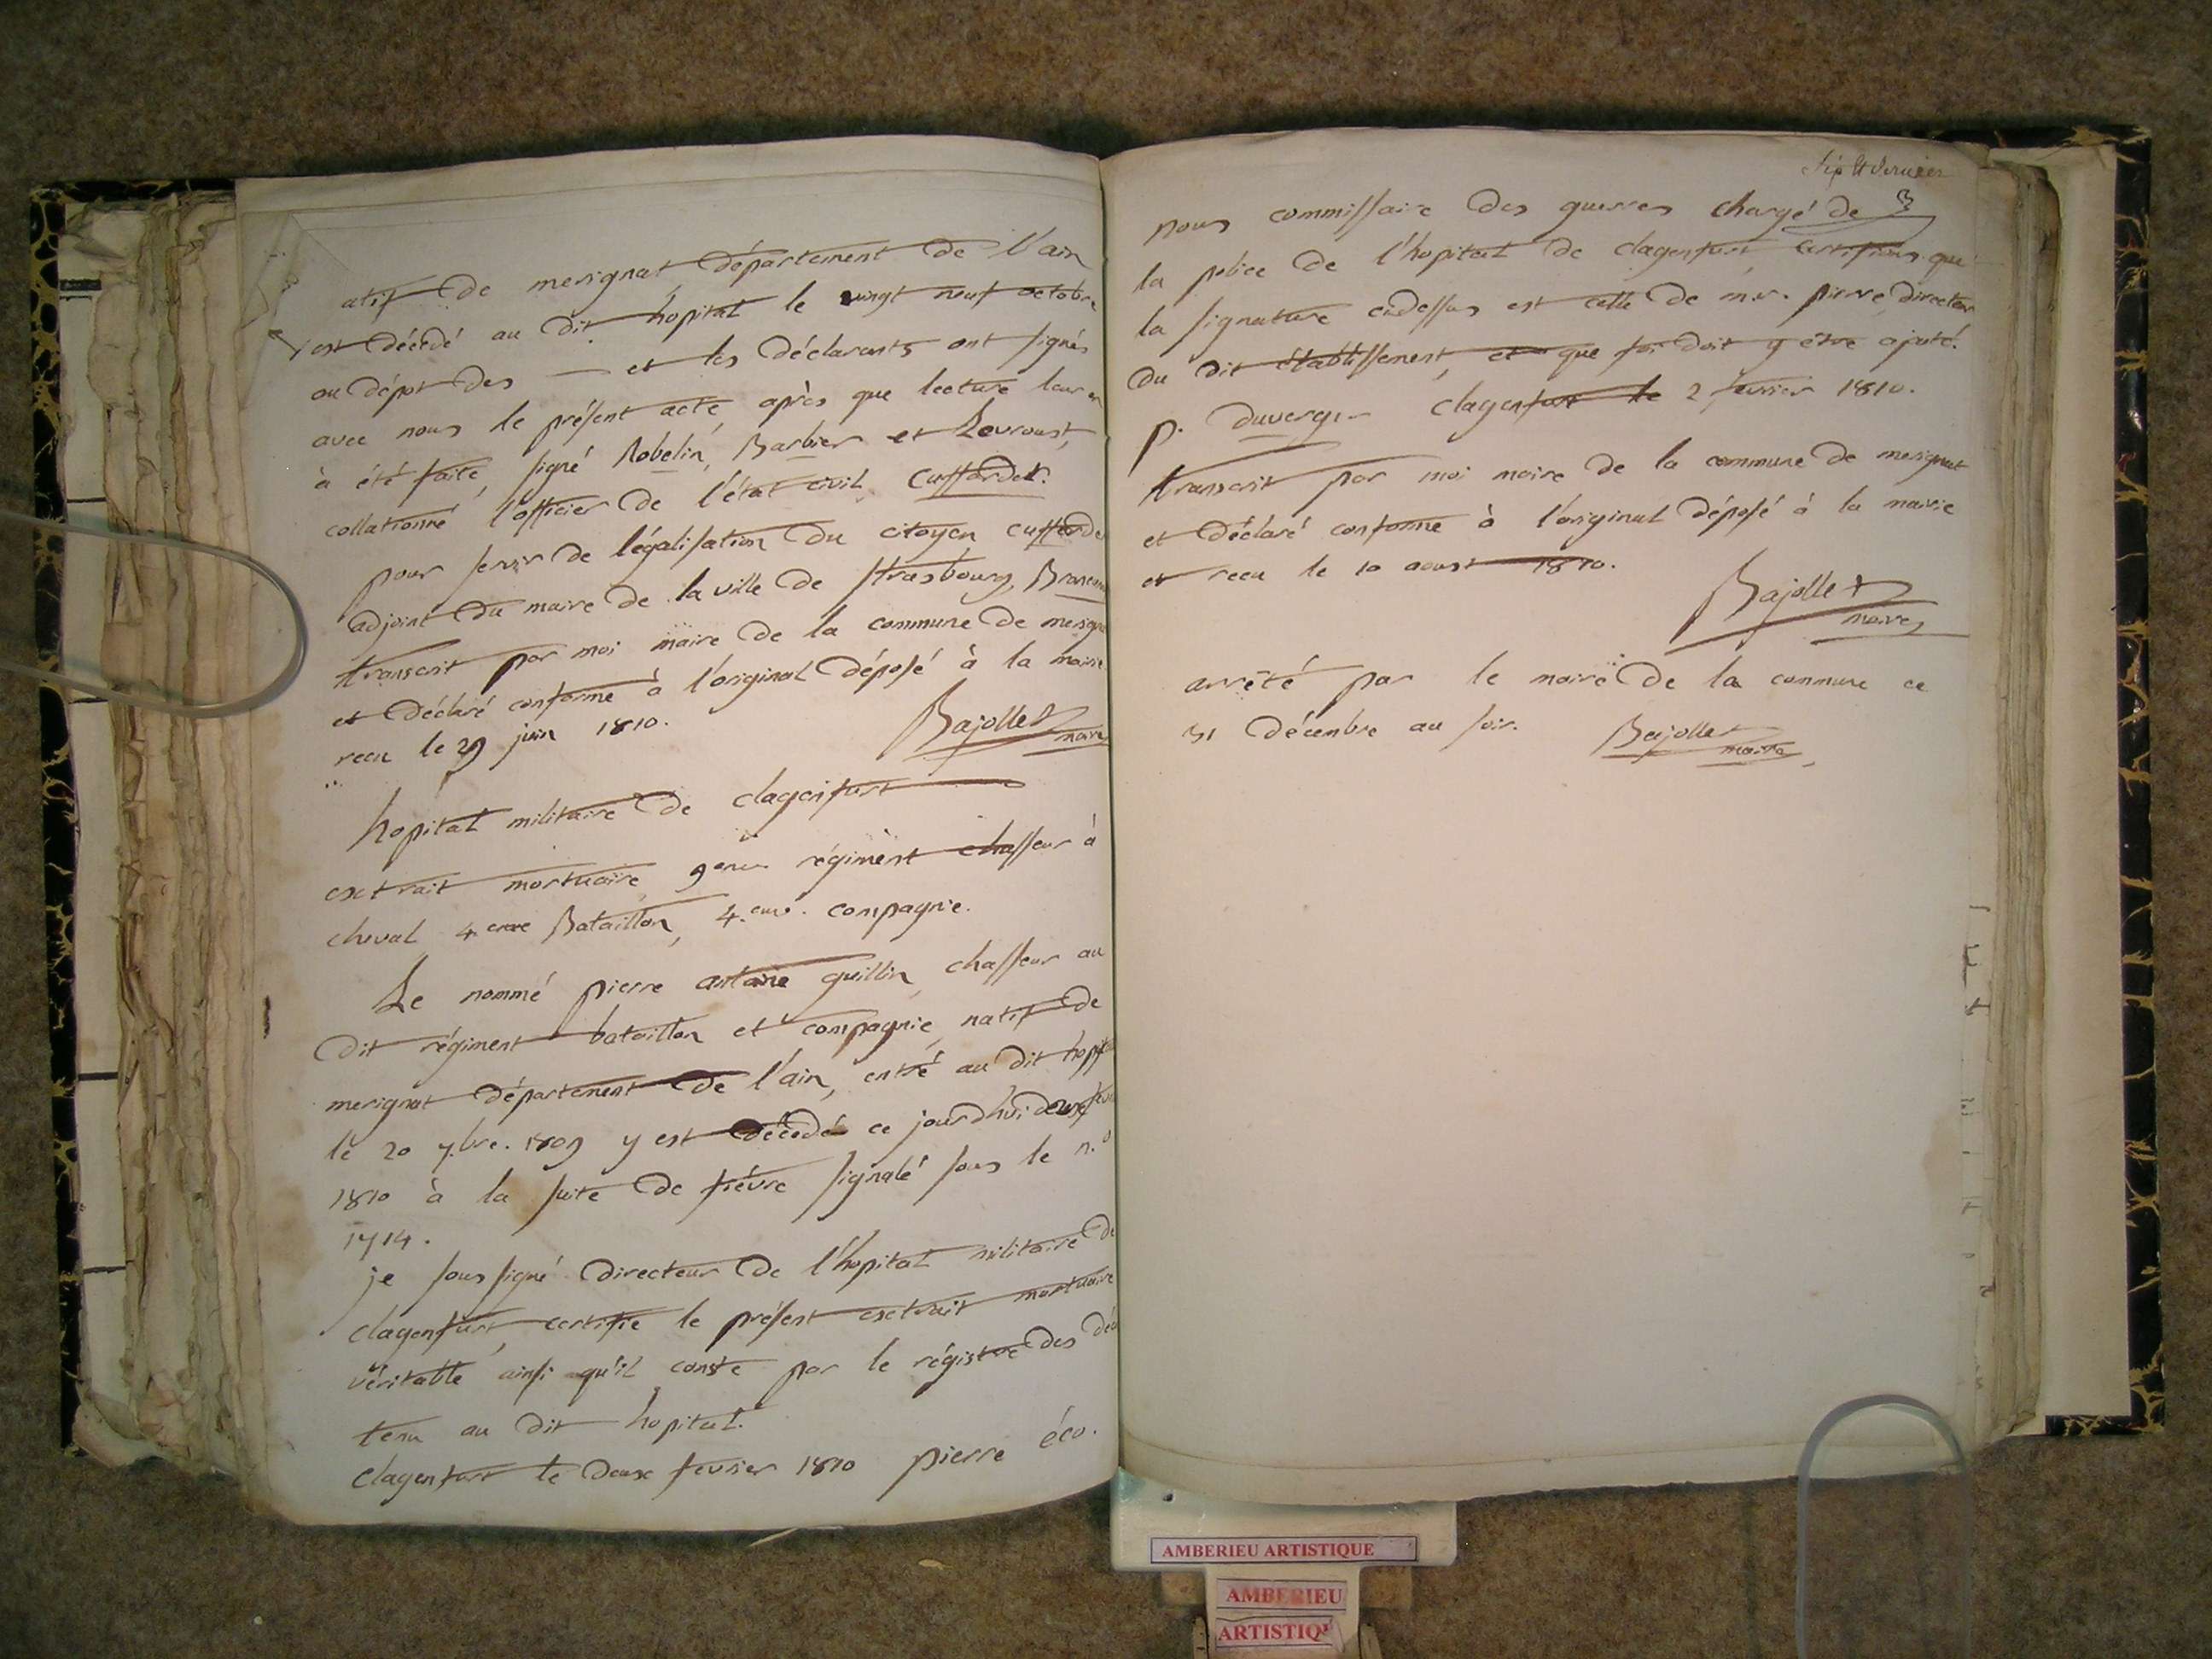 atif de merignat département de l'ain
est décédé au dit hopital le vingt neuf octobre
au dépot des — et les déclarants ont signés
avec nous le présent acte, après que lecture leur en
à été faite, signé Robelin, Barbier et Levroust,
collationné l'officier de l'état civil Cuffardet.
pour servir de légalisation du citoyen cuffarde
adjoint du maire de la ville de strasbourg,
transcrit par moi maire de la commune de merigna
et déclaré conforme à l'original déposé à la mairie
recu le 29 juin 1810. Bajollet
maire
hopital militaire de clagenfurt
extrait mortuaire, 9eme régiment chasseur à
cheval 4eme Bataillon, 4.eme compagnie.
Le nommé pierre antoine guillin, chasseur au
dit régiment bataillon et compagnie, natif de
merignat département de l'ain, entré au dit hopital
le 20 7.bre. 1809 y est décédé ce jourdhui deux fevr
1810 à la suite de fiévre signalé sous le n.o
1714.
je soussigné directeur de l'hopital militaire de
clagenfurt, certifie le présent extrait mortuaire
véritable ainsi qu'il conste par le régistre des déc
tenu au dit hopital.
Clagenfurt le deux fevrier 1810 pierre éco.
six et dernier
nous commissaire des guerres chargé de
la police de l'hopital de clagenfurt certifions que
la signature cidessus est celle de m.r. pierre directeur
du dit établissement, et que foi doit y être ajouté.
p. duvergr Clagenfurt le 2 fevrier 1810.
transcrit par moi maire de la commune de merignat
et déclaré conforme à l'original déposé à la mairie
et recu le 10 aoust 1810.
Bajollet
maire
arrêté par le maire de la commune ce
31 décembre au soir. Bajollet
maire
AMBERIEU ARTISTIQUE
AMBERIEU
ARTISTIQU